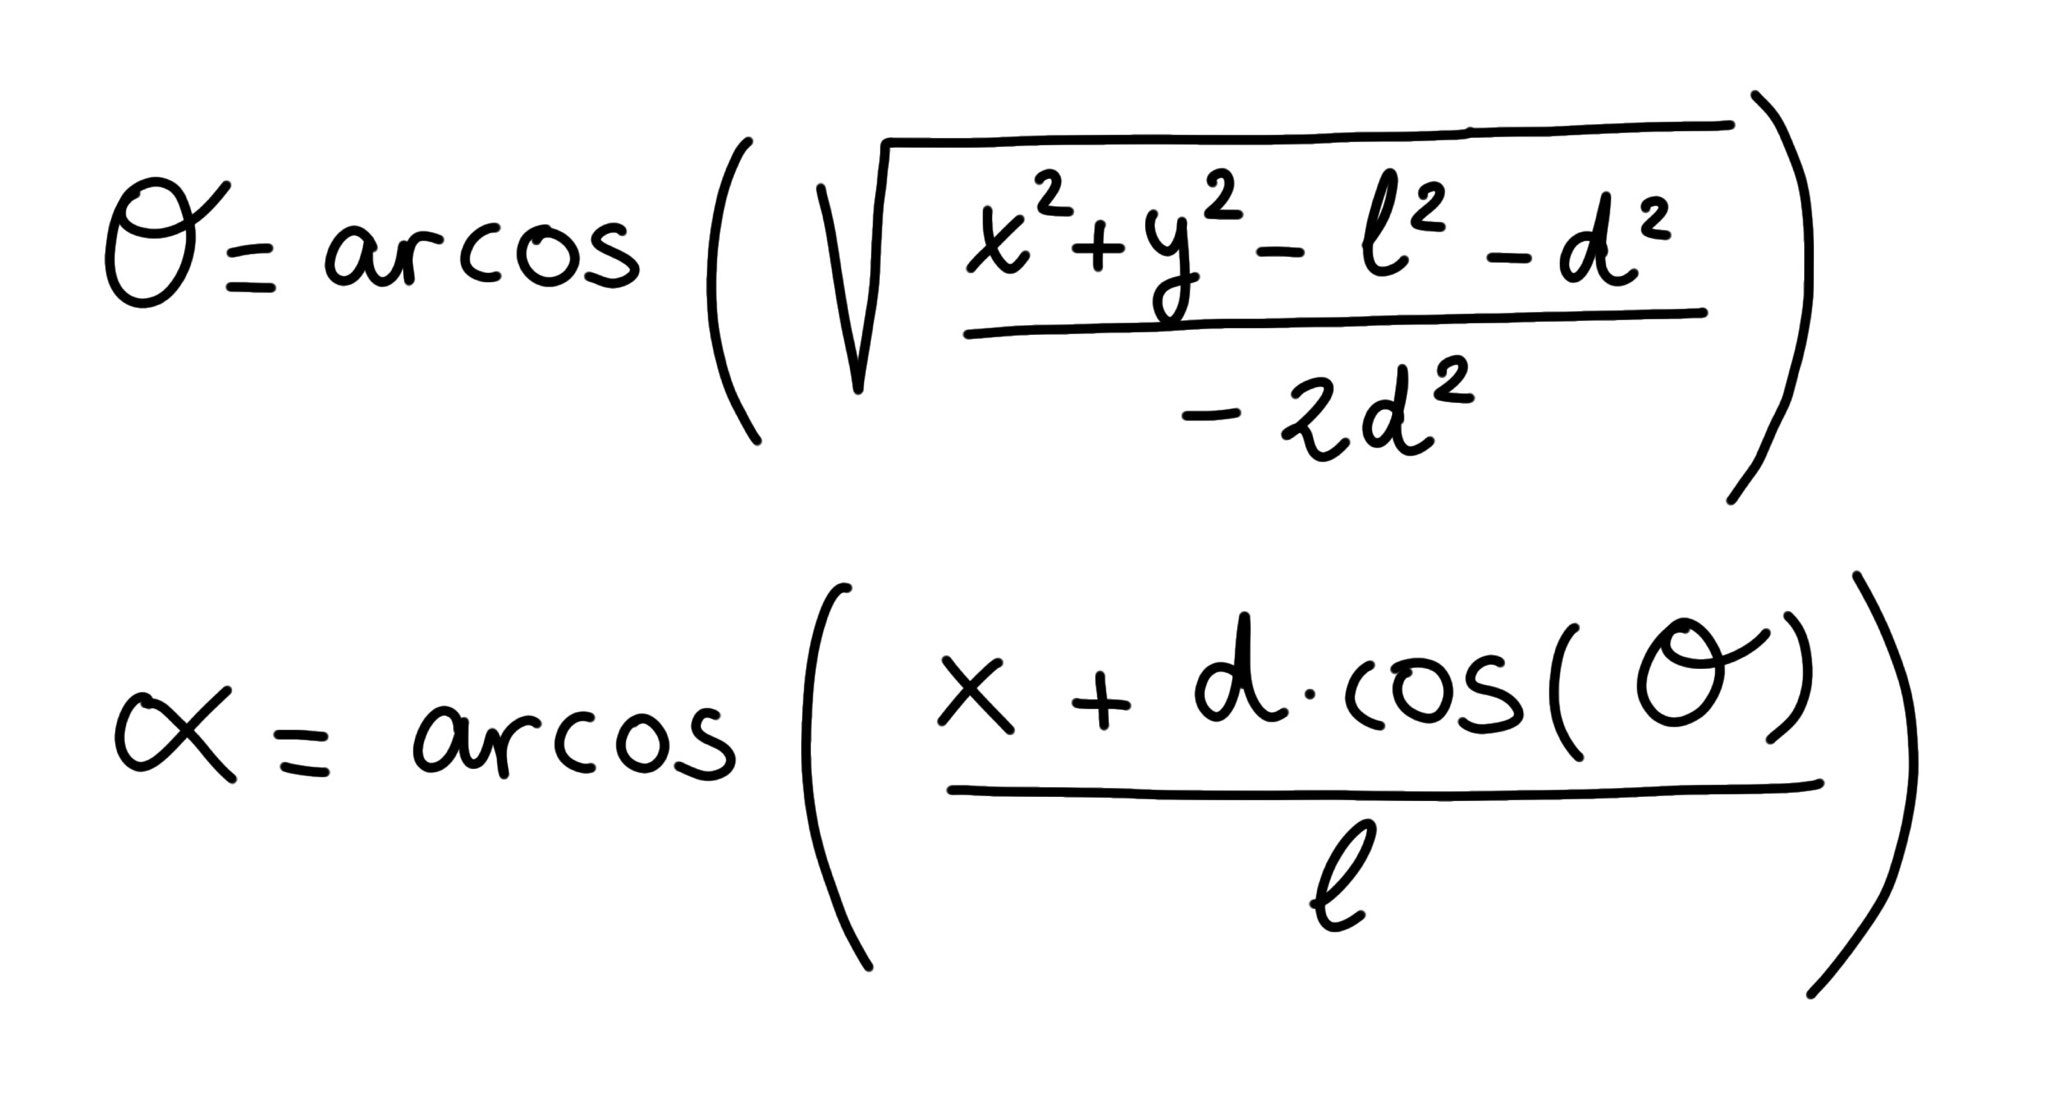 θ = arcos ( √( (x² + y² - l² - d²) / (-2d²) ) )
α = arcos ( (x + d · cos(θ)) / l )